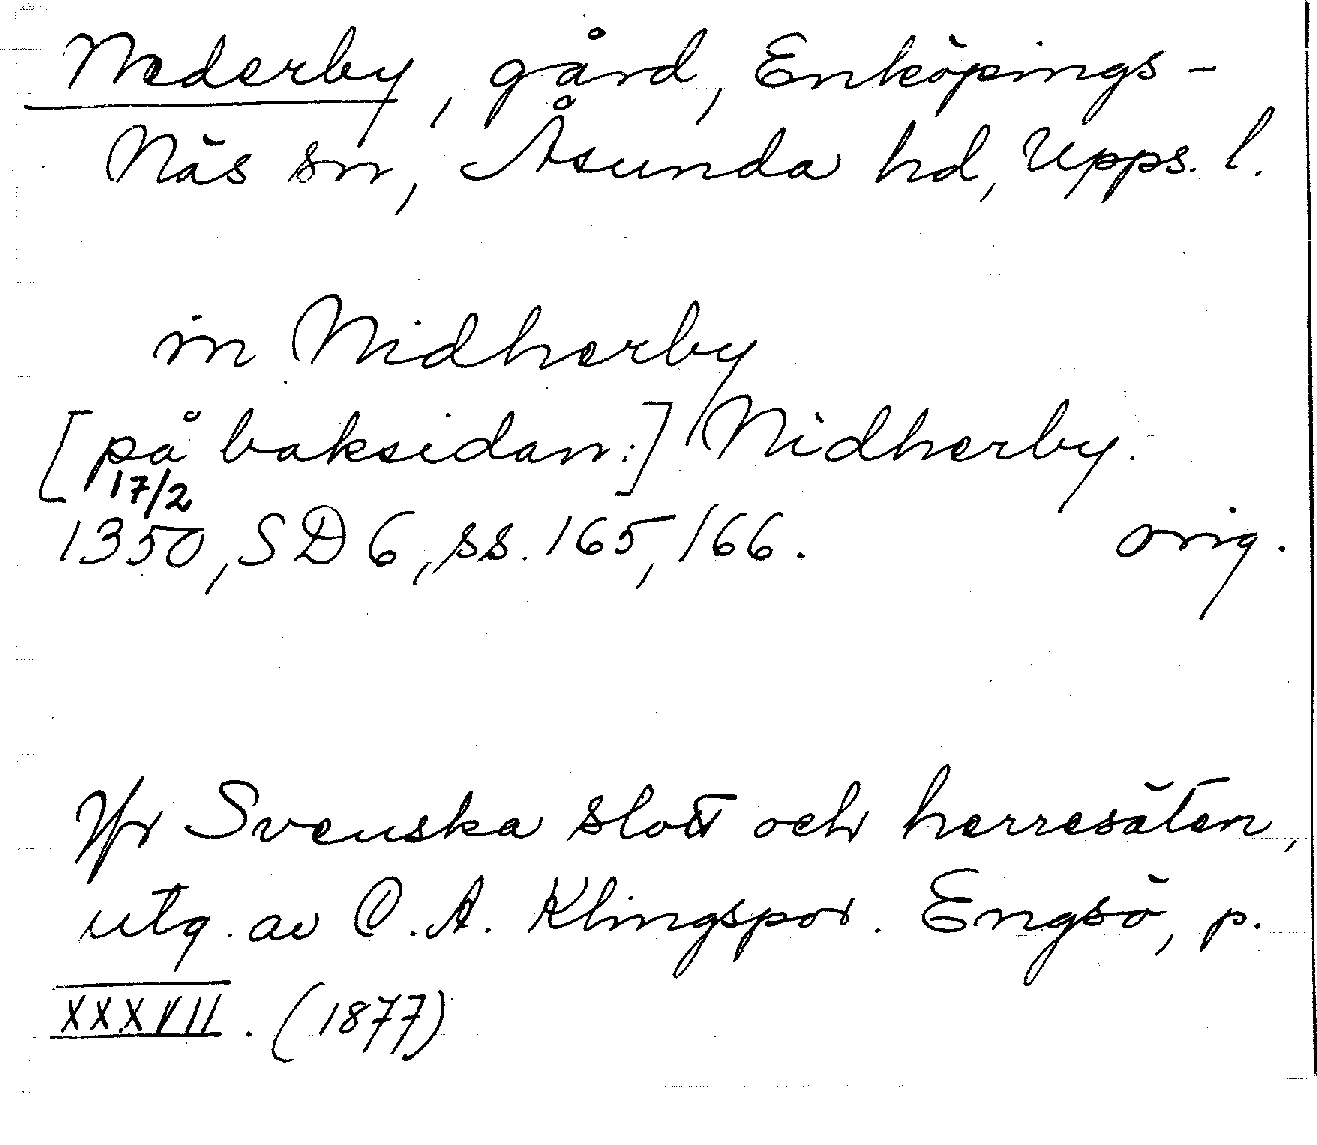 Nederby, gård, Enköpings-
Näs sn, Åsunda hd, Upps. l.
in Nidherby
[på baksidan:] Nidherby.
17/2
1350, SD 6, ss. 165, 166. orig.
Jfr Svenska slott och herresäten,
utg. av C. A. Klingspor. Engsö, p.
XXXVII. (1877)